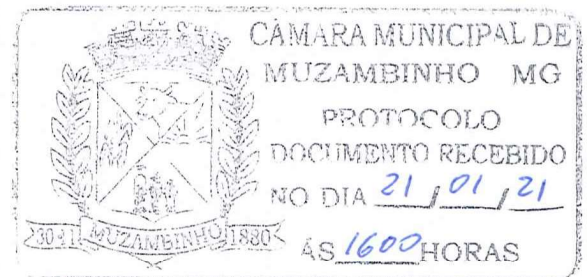 CÂMARA MUNICIPAL DE
MUZAMBINHO MG
PROTOCOLO
DOCUMENTO RECEBIDO
NO DIA 21 / 01 / 21
ÀS 1600 HORAS
MUZAMBINHO
1880